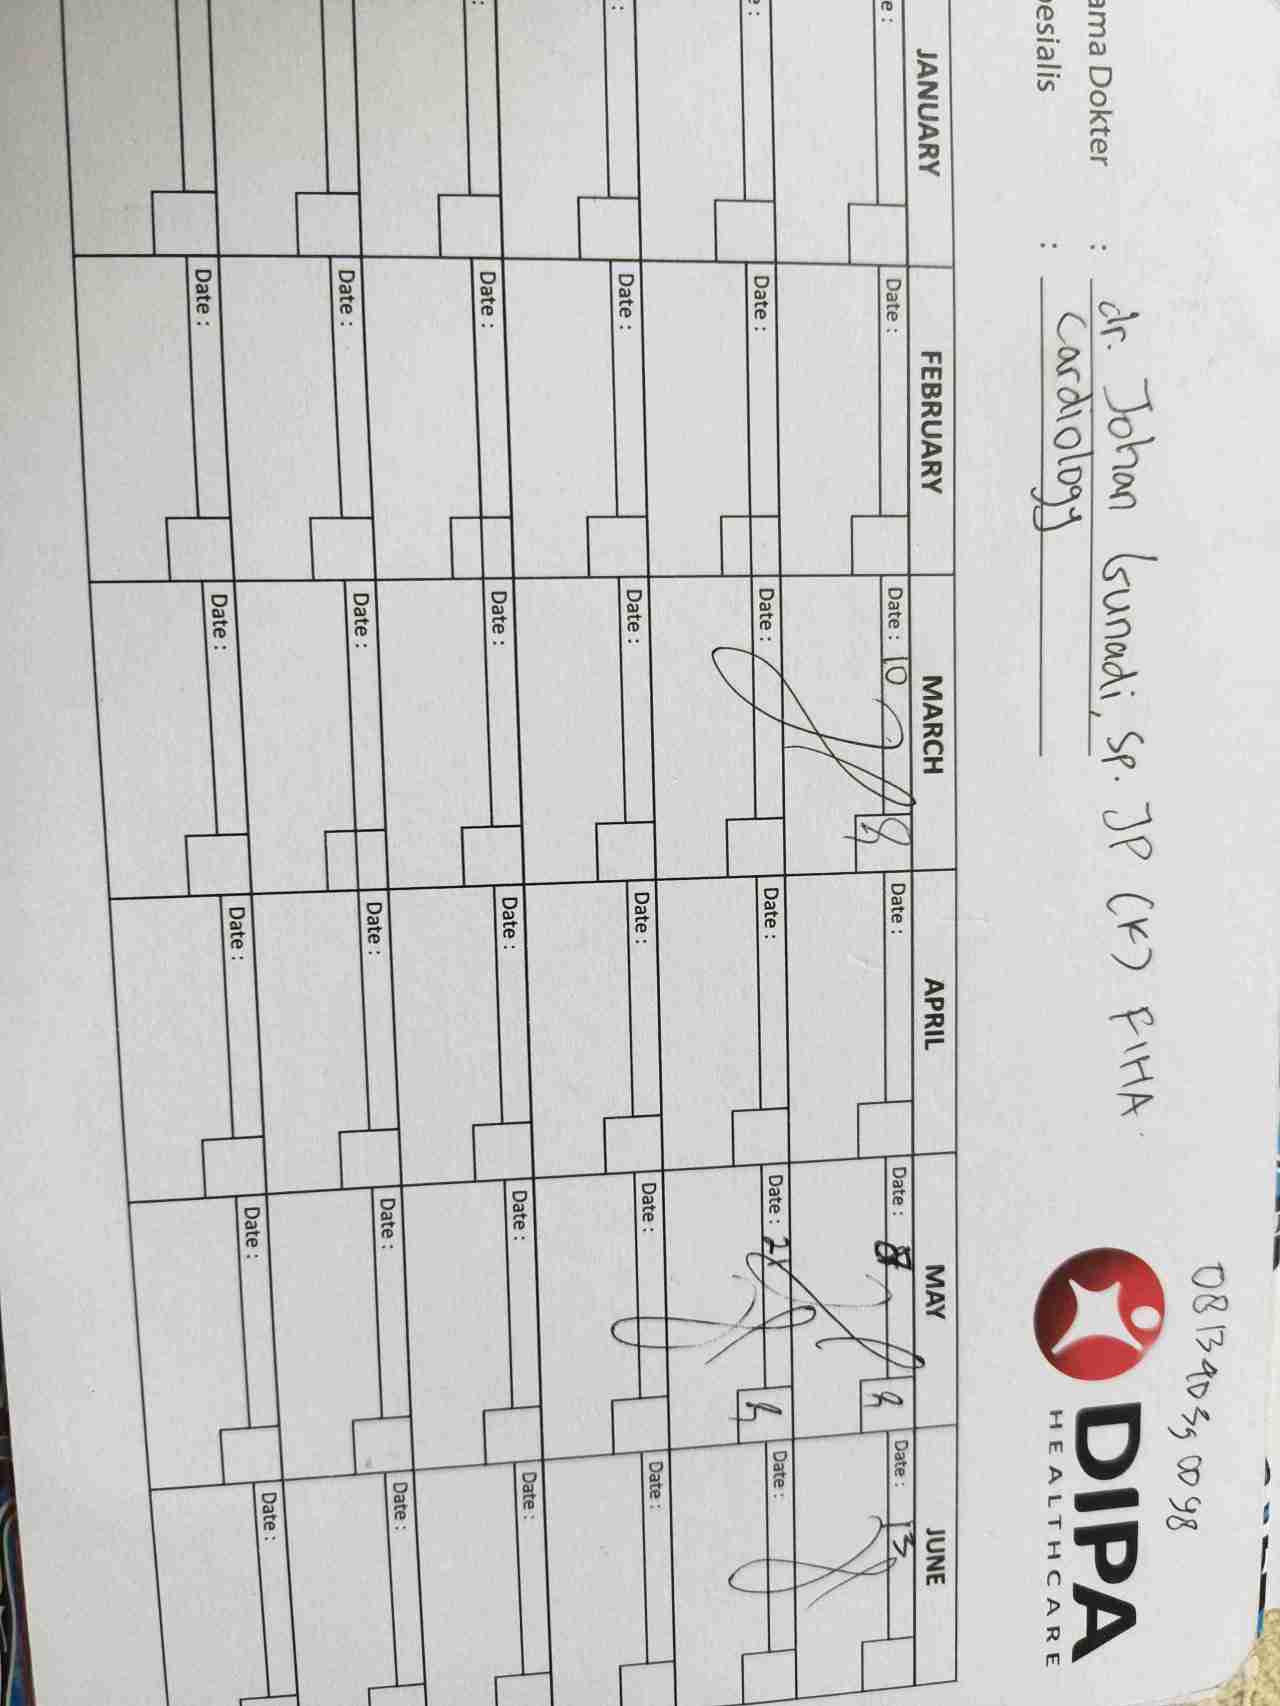 0813 403g 0098
DIPA
HEALTHCARE
ama Dokter : dr. Johan Gunadi, Sp. JP (K) FIHA.
pesialis : Cardiology
JANUARY FEBRUARY MARCH APRIL MAY JUNE
e : Date : Date : 10 Date : Date : 8 Date : 13
e : Date : Date : Date : Date : Date :
: Date : Date : Date : Date : Date :
: Date : Date : Date : Date : Date :
Date : Date : Date : Date : Date :
Date : Date : Date : Date : Date :